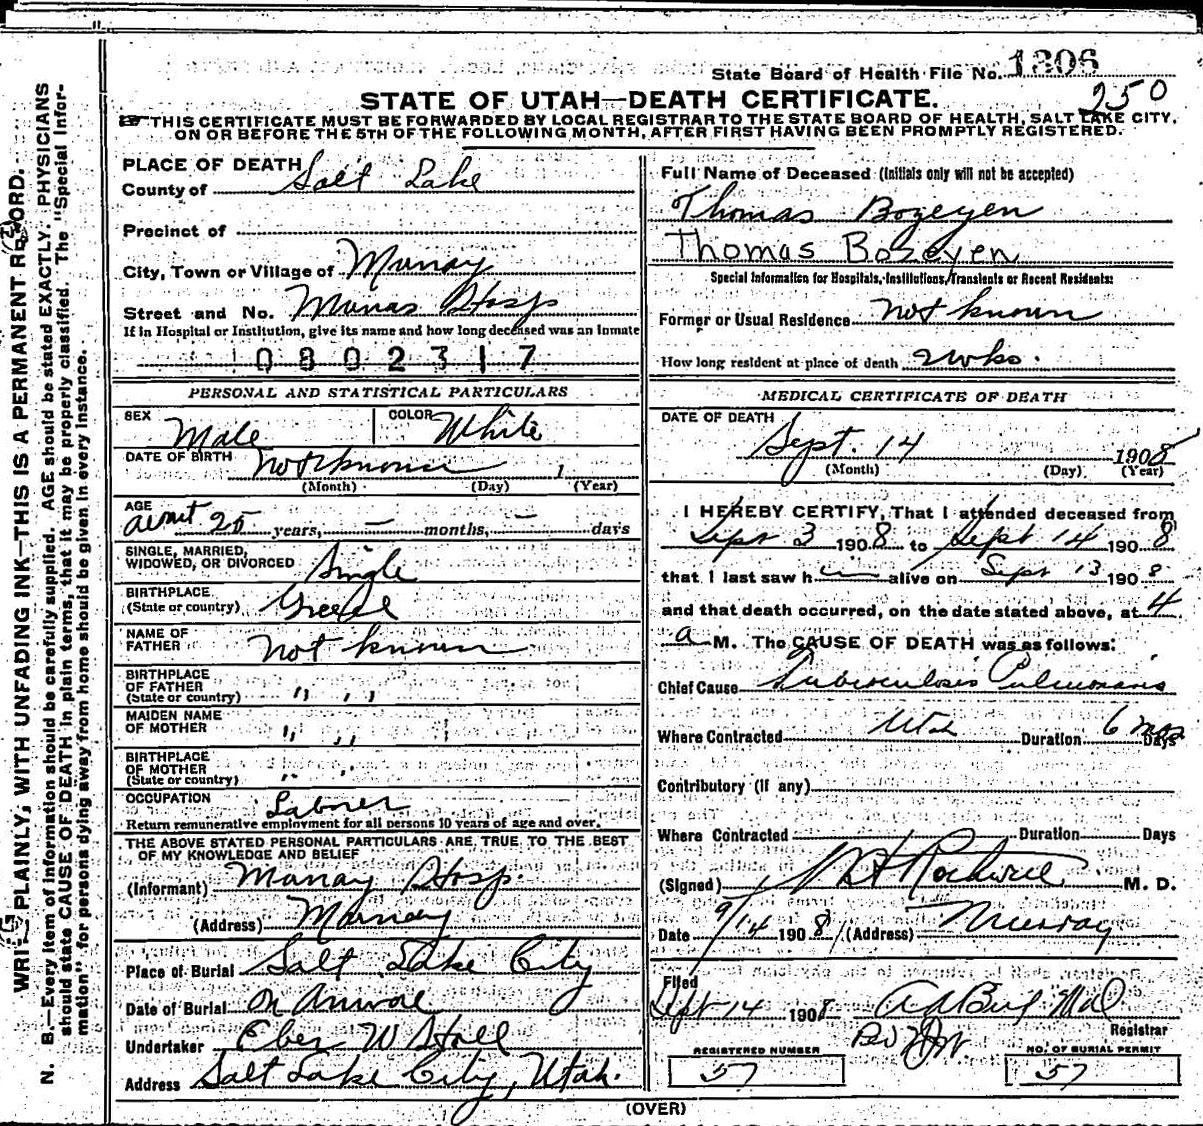 State Board of Health File No. 1306
250
STATE OF UTAH—DEATH CERTIFICATE.
THIS CERTIFICATE MUST BE FORWARDED BY LOCAL REGISTRAR TO THE STATE BOARD OF HEALTH, SALT LAKE CITY,
ON OR BEFORE THE 5TH OF THE FOLLOWING MONTH, AFTER FIRST HAVING BEEN PROMPTLY REGISTERED.
WRITE PLAINLY, WITH UNFADING INK—THIS IS A PERMANENT RECORD.
N. B.—Every item of information should be carefully supplied. AGE should be stated EXACTLY. PHYSICIANS
should state CAUSE OF DEATH in plain terms, that it may be properly classified. The "Special Infor-
mation" for persons dying away from home should be given in every instance.
PLACE OF DEATH
County of Salt Lake
Precinct of
City, Town or Village of Murray
Street and No. Murray Hosp
If in Hospital or Institution, give its name and how long deceased was an inmate
0802317
PERSONAL AND STATISTICAL PARTICULARS
SEX Male COLOR White
DATE OF BIRTH not known 1
(Month) (Day) (Year)
AGE about 25 years, — months, — days
SINGLE, MARRIED,
WIDOWED, OR DIVORCED Single
BIRTHPLACE
(State or country) Greece
NAME OF
FATHER not known
BIRTHPLACE
OF FATHER
(State or country) " "
MAIDEN NAME
OF MOTHER " "
BIRTHPLACE
OF MOTHER
(State or country) " "
OCCUPATION Laborer
Return remunerative employment for all persons 10 years of age and over.
THE ABOVE STATED PERSONAL PARTICULARS ARE TRUE TO THE BEST
OF MY KNOWLEDGE AND BELIEF
(Informant) Murray Hosp.
(Address) Murray
Place of Burial Salt Lake City
Date of Burial On Arrival
Undertaker Eber W Hall
Address Salt Lake City, Utah.
Full Name of Deceased (Initials only will not be accepted)
Thomas Bozeyen
Thomas Bozeyen
Special Information for Hospitals, Institutions, Transients or Recent Residents:
Former or Usual Residence not known
How long resident at place of death 2 wks.
MEDICAL CERTIFICATE OF DEATH
DATE OF DEATH
Sept. 14 1908
(Month) (Day) (Year)
I HEREBY CERTIFY, That I attended deceased from
Sept 3 1908 to Sept 14 1908
that I last saw him alive on Sept 13 1908
and that death occurred, on the date stated above, at 4
a M. The CAUSE OF DEATH was as follows:
Chief Cause Tuberculosis Pulmonaris
Where Contracted Utah Duration 6 mos Days
Contributory (if any)
Where Contracted Duration Days
(Signed) Rothwell M. D.
Date 9/14 1908 (Address) Murray
Filed
Sept 14 1908
Registrar
REGISTERED NUMBER
57
NO. OF BURIAL PERMIT
57
(OVER)